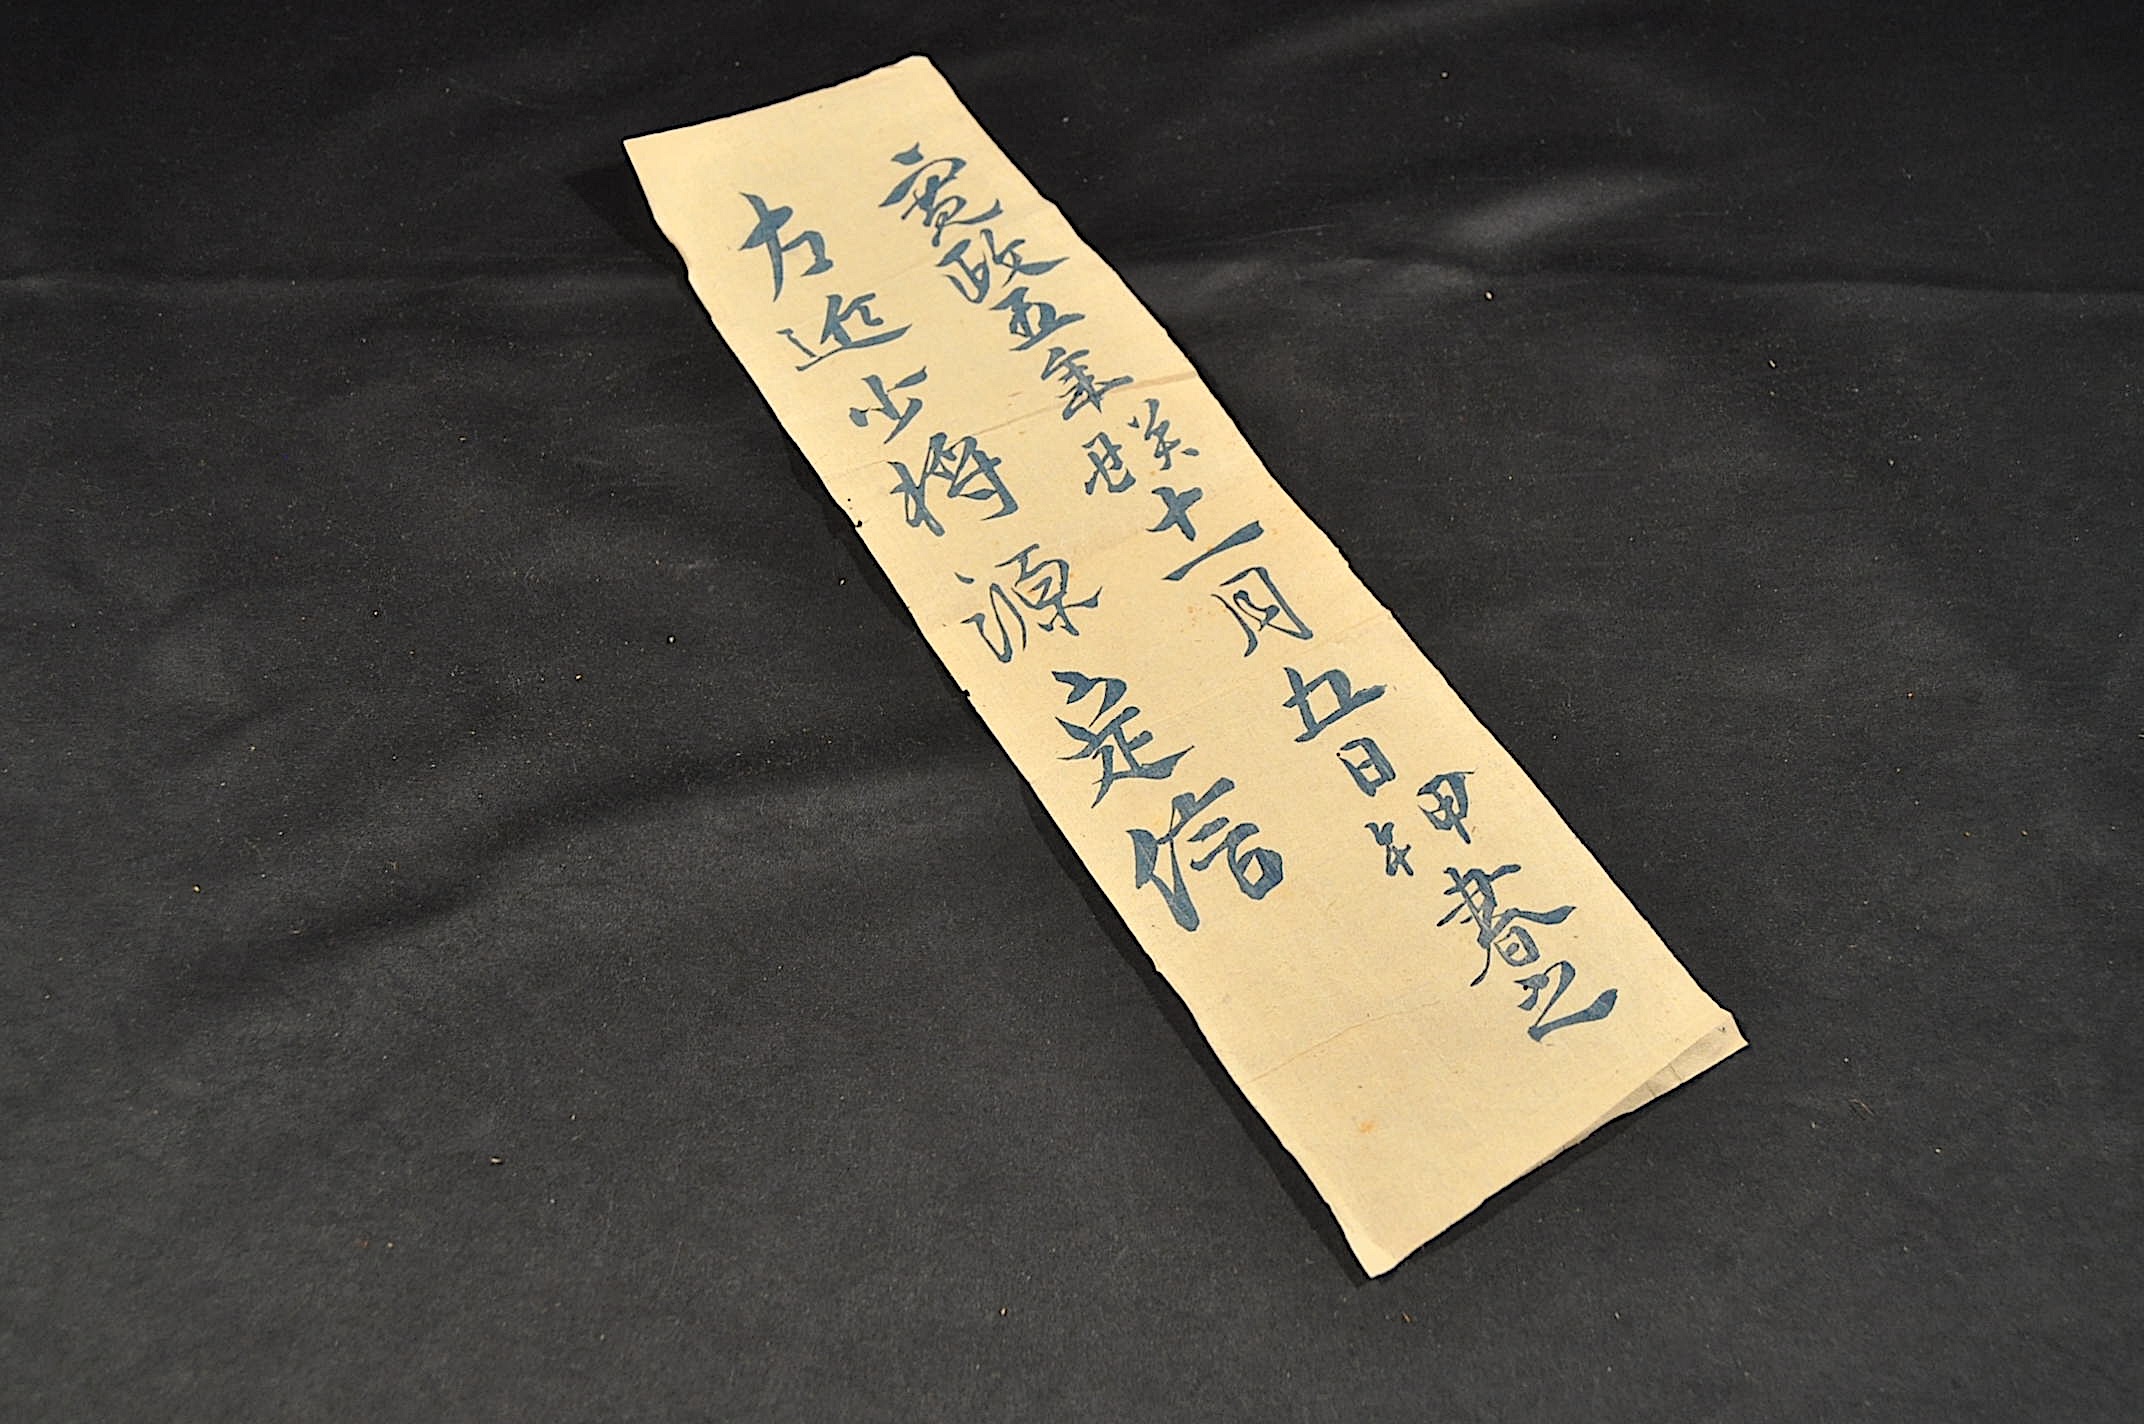 寛政五年癸丑十一月五日甲午書之
左近少将源定信